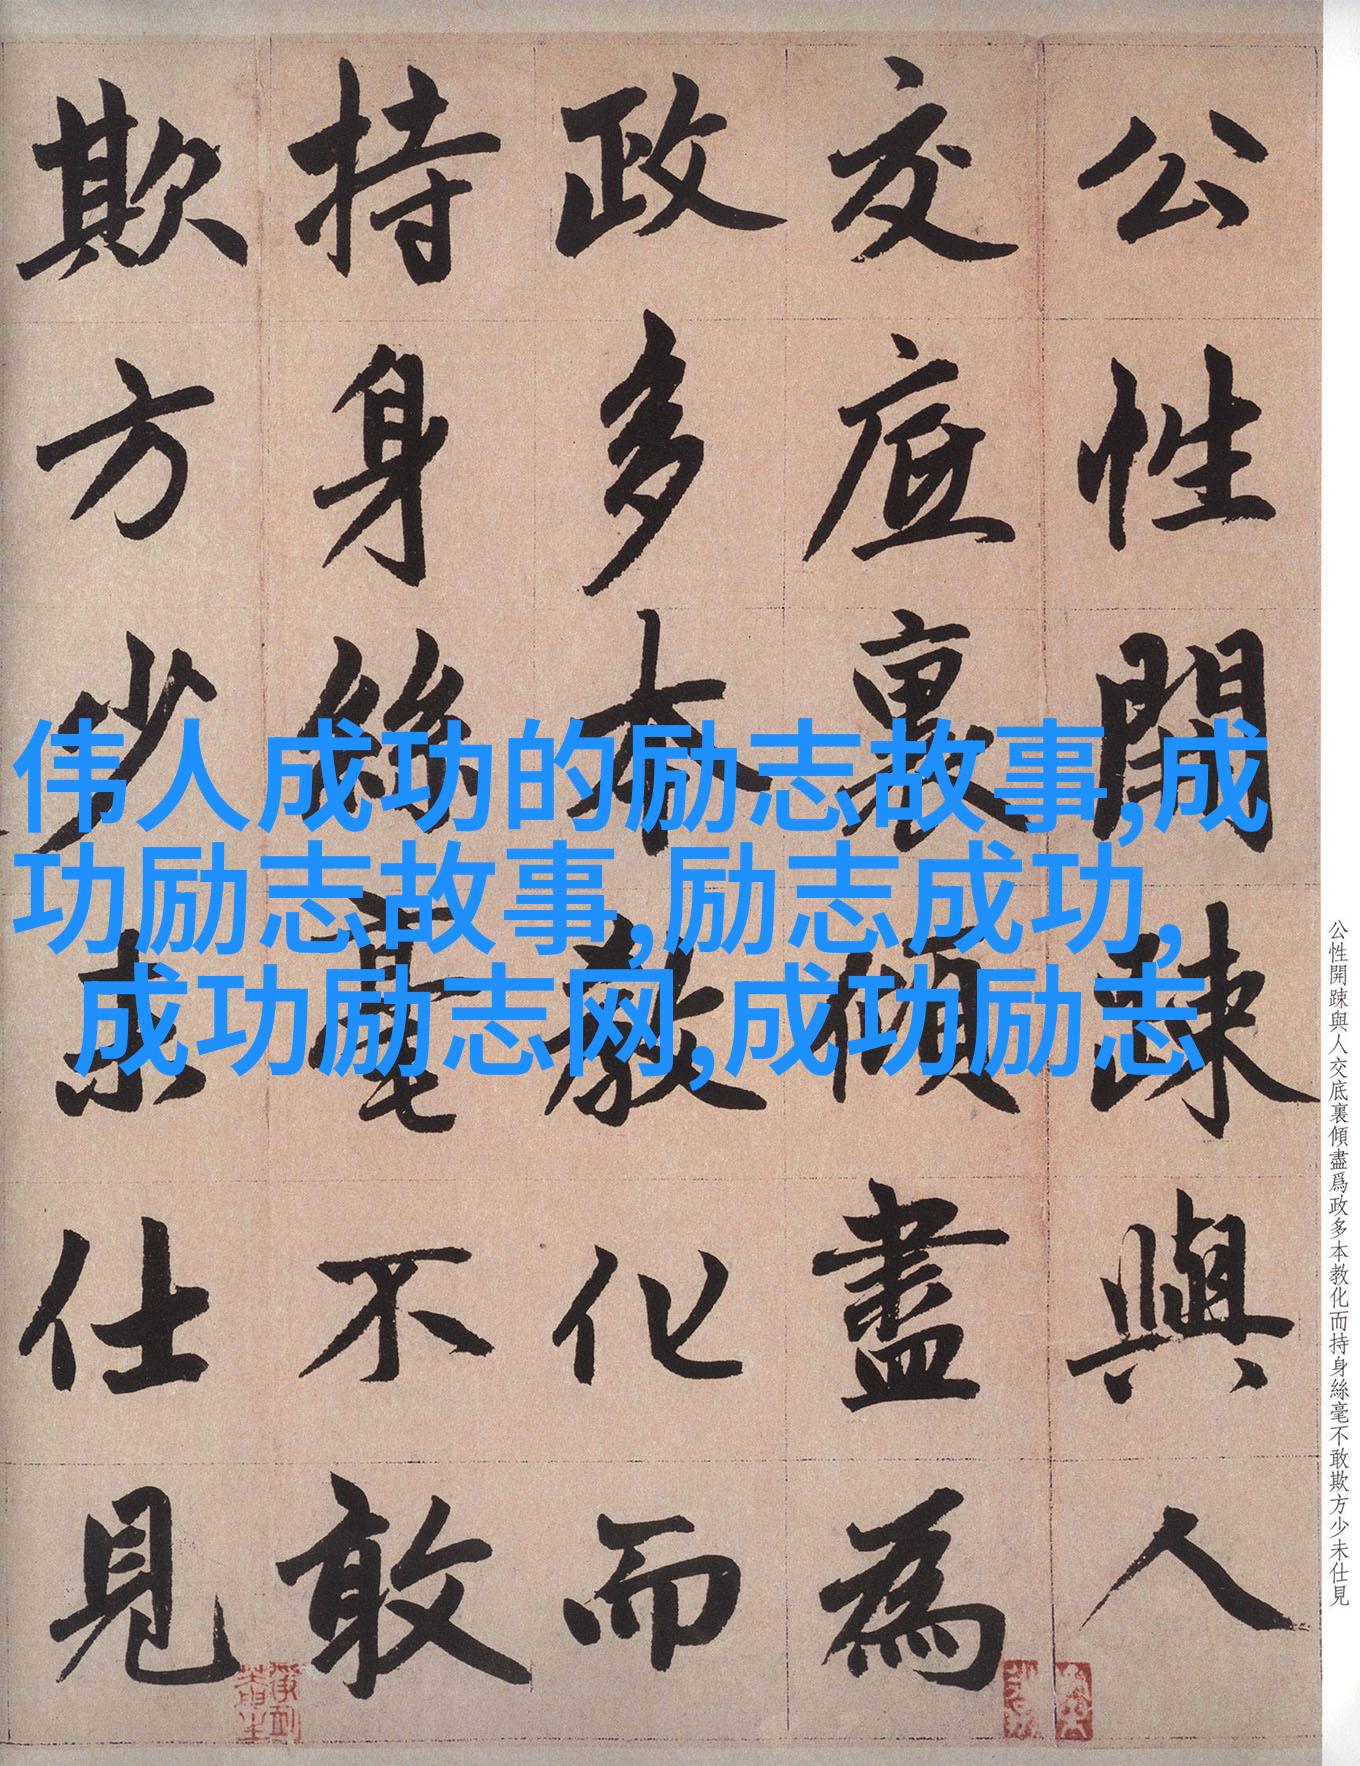 公性開踈與人
交底裏傾盡為
政多本教化而
持身絲毫不敢
欺方少未仕見
伟人成功的励志故事,成
功励志故事,励志成功,
成功励志网,成功励志
公性開踈與人交底裏傾盡爲政多本教化而持身絲毫不敢欺方少未仕見